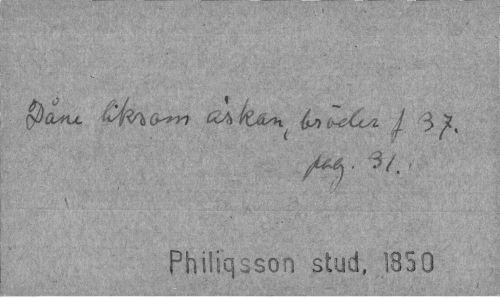 Dåne liksom åskan, bröder f 37.
pag. 31.
Philiqsson stud, 1850